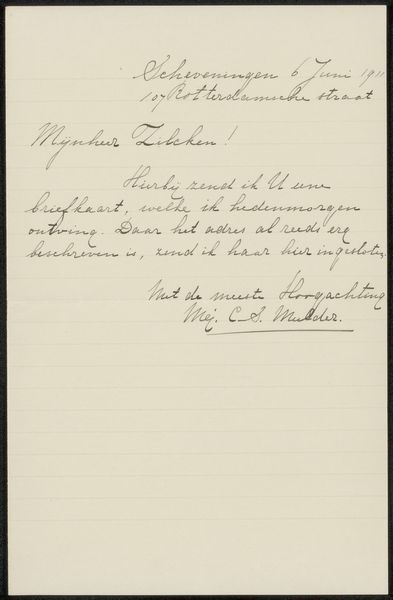 Scheveningen 6 Juni 1911
107 Rotterdamsche straat
Mijnheer Zilcken!
Hierbij zend ik U eene
briefkaart, welke ik hedenmorgen
ontving. Daar het adres al reeds erg
beschreven is, zend ik haar hier ingesloten.
Met de meeste Hoogachting
Mej. C. S. Mulder.